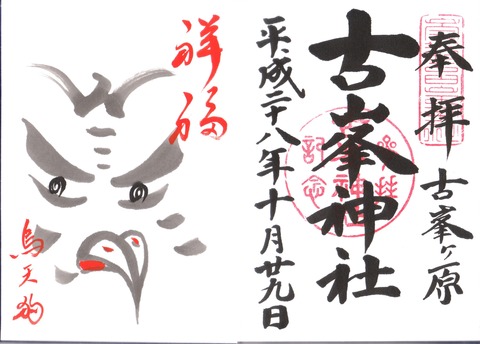 奉拝
古峯ヶ原
古峯神社
平成二十八年十月廿九日
祥福
烏天狗